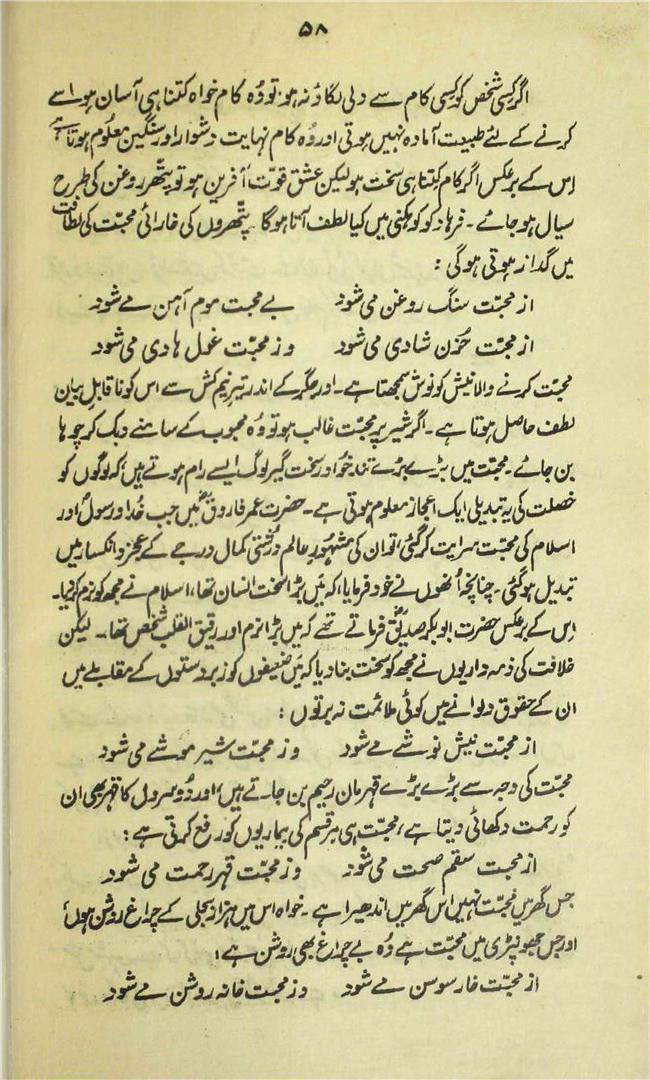 ۵۸
اگر کسی شخص کو کسی کام سے دلی لگاؤ نہ ہو تو وُہ کام خواہ کتنا ہی آسان ہو اسے
کرنے کے لئے طبیعت آمادہ نہیں ہوتی اور وُہ کام نہایت دشوار اور سنگین معلُوم ہوتا ہے
اِس کے برعکس اگر کام کِتنا ہی سخت ہو لیکن عشق قوّت آفرین ہو تو پتّھر روغن کی طرح
سیال ہو جائے۔ فرہاد کو کوہکنی میں کیا لطف آتا ہوگا پتّھروں کی خارائی محبّت کی لطافت
میں گداز ہوتی ہوگی :
از محبّت سنگ روغن می شود بے محبت موم آہن مے شود
از محبّت حُزن شادی می شود وز محبّت غول ہادی می شود
محبّت کرنے والا نیش کو نوش سمجھتا ہے۔ اور جگر کے اندر تیرِ نیم کش سے اس کو ناقابلِ بیان
لطف حاصل ہوتا ہے۔ اگر شیر پر محبّت غالب ہو تو وُہ محبوب کے سامنے دبک کر چوہا
بن جائے۔ محبّت میں بڑے بڑے تند خُو اور سخت گیر لوگ ایسے رام ہوتے ہیں کہ لوگوں کو
خصلت کی یہ تبدیلی ایک اعجاز معلوم ہوتی ہے۔ حضرت عمر فاروقؓ میں جب خُدا و رسولؐ اور
اسلام کی محبّت سرایت کر گئی تو ان کی مشہُورِ عالم دُرشتی کمال درجے کے عجز و انکسار میں
تبدیل ہو گئی۔ چنانچہ اُنھوں نے خود فرمایا، کہ میَں بڑا سخت انسان تھا، اسلام نے مجھ کو نرم کر دیا۔
اِس کے برعکس حضرت ابوبکر صدیقؓ فرماتے تھے کہ میں بڑا نرم اور رقیق القلب شخص تھا۔ لیکن
خلافت کی ذمہ داریوں نے مجھ کو سخت بنا دیا کہ میَں ضعیفوں کو زبردستوں کے مقابلے میں
ان کے حقوق دلوانے میں کوئی ملائمت نہ برتوں :
از محبّت نیش نوشے مے شود وز محبّت شیر موشے می شود
محبّت کی وجہ سے بڑے بڑے قہرمان رحیم بن جاتے ہیں، اور دُوسروں کا قہر بھی ان
کو رحمت دکھائی دیتا ہے، محبّت ہی ہر قسم کی بیماریوں کو رفع کرتی ہے :
از محبت سقم صحت می شود وز محبّت قہر رحمت می شود
جس گھر میں محبّت نہیں اس گھر میں اندھیرا ہے۔ خواہ اس میں ہزار بجلی کے چراغ روشن ہوں،
اور جس جھونپڑی میں محبّت ہے وُہ بے چراغ بھی روشن ہے :
از محبّت خار سوسن مے شود وز محبت خانہ روشن مے شود